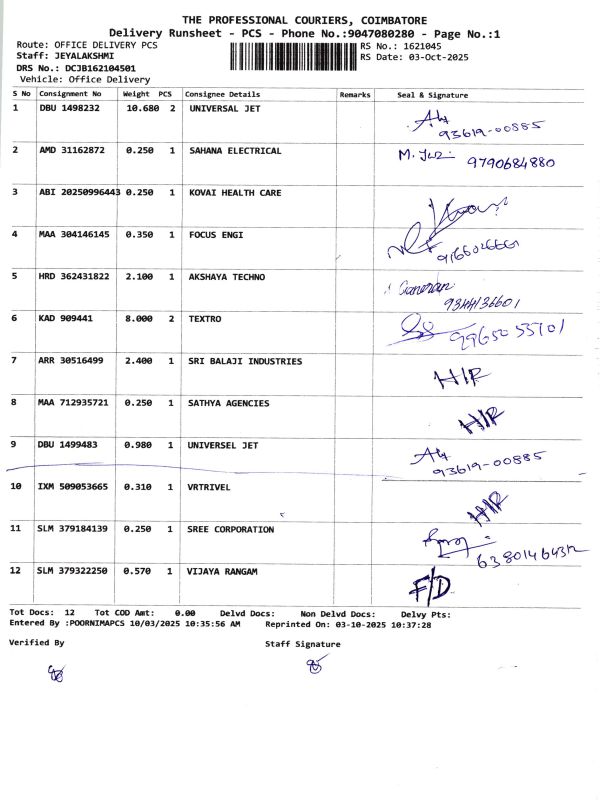 THE PROFESSIONAL COURIERS, COIMBATORE
Delivery Runsheet - PCS - Phone No.:9047080280 - Page No.:1
Route: OFFICE DELIVERY PCS
RS No.: 1621045
Staff: JEYALAKSHMI
RS Date: 03-Oct-2025
DRS No.: DCJB162104501
Vehicle: Office Delivery
S No Consignment No Weight PCS Consignee Details Remarks Seal & Signature
1 DBU 1498232 10.680 2 UNIVERSAL JET
93619-00885
2 AMD 31162872 0.250 1 SAHANA ELECTRICAL
9790684880
3 ABI 20250996443 0.250 1 KOVAI HEALTH CARE
4 MAA 304146145 0.350 1 FOCUS ENGI
5 HRD 362431822 2.100 1 AKSHAYA TECHNO
9344136601
6 KAD 909441 8.000 2 TEXTRO
7 ARR 30516499 2.400 1 SRI BALAJI INDUSTRIES
H/R
8 MAA 712935721 0.250 1 SATHYA AGENCIES
H/R
9 DBU 1499483 0.980 1 UNIVERSEL JET
93619-00885
10 IXM 509053665 0.310 1 VRTRIVEL
H/R
11 SLM 379184139 0.250 1 SREE CORPORATION
12 SLM 379322250 0.570 1 VIJAYA RANGAM
F/D
Tot Docs: 12 Tot COD Amt: 0.00 Delvd Docs: Non Delvd Docs: Delvy Pts:
Entered By :POORNIMAPCS 10/03/2025 10:35:56 AM Reprinted On: 03-10-2025 10:37:28
Verified By Staff Signature